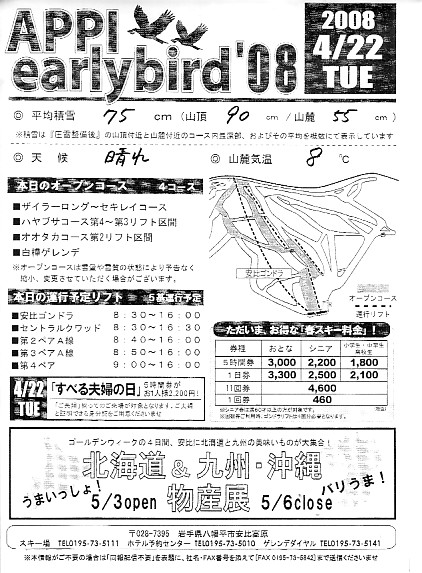 APPI
earlybird'08
2008
4/22
TUE
◎ 平均積雪 75 cm (山頂 90 cm / 山麓 55 cm)
※積雪は『圧雪整備後』の山頂付近と山麓付近のコース内最深部、およびその平均を模擬にて表示しています
◎ 天 候 晴れ ◎ 山麓気温 8 ℃
本日のオープンコース 4コース
■ザイラーロング~セキレイコース
■ハヤブサコース第4~第3リフト区間
■オオタカコース第2リフト区間
■白樺ゲレンデ
※オープンコースは雲量や雪質の状態により予告なく
縮小、変更させていただく場合がございます。
安比ゴンドラ
オープンコース
運行リフト
本日の運行予定リフト 5基運行予定
■安比ゴンドラ 8:30~16:00
■セントラルクワッド 8:30~16:30
■第2ペアA線 8:40~16:00
■第3ペアA線 8:50~16:00
■第4ペア 9:00~16:00
ただいま、お得な「春スキー料金」!
券種 おとな シニア 小学生・中学生 高校生
5時間券 3,000 2,200 1,800
1日券 3,300 2,500 2,100
11回券 4,600
1回券 460
4/22
TUE
「すべる夫婦の日」 5時間券が
お1人様2,200円!
ゴールデンウィークの4日間、安比に北海道と九州の美味いものが大集合!
北海道 & 九州・沖縄
うまいっしょ! 物産展 バリうま!
5/3open 5/6close
〒028-7395 岩手県八幡平市安比高原
スキー場 TEL0195-73-5111 ホテル予約センター TEL0195-73-5010 ゲレンデダイヤル TEL0195-73-5141
※本情報がご不要の場合は「同報配信不要」を表題に、社名・FAX番号を添えて[FAX 0195-73-5842]まで送信くださいませ